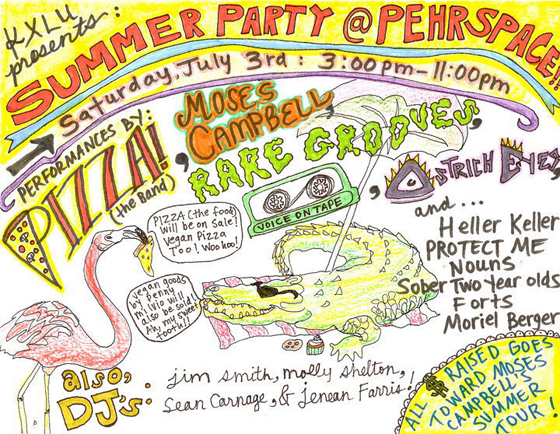 KXLU
presents:
SUMMER PARTY @ PEHRSPACE!
Saturday, July 3rd: 3:00pm-11:00pm
PERFORMANCES BY:
PIZZA!
(the Band)
, MOSES
CAMPBELL,
RARE GROOVES,
VOICE ON TAPE
, OSTRICH EYES,
and...
Heller Keller
PROTECT ME
Nouns
Sober Two Year olds
Forts
Moriel Berger
PIZZA (the food)
will be on Sale!
Vegan Pizza
Too! Woo hoo!
Vegan goods
by Penny
milvio will
also be sold!
Ah, my sweet
tooth!!
also,
DJ's:
jim smith, molly shelton,
Sean Carnage, & Jenean Farris!
ALL $ RAISED GOES
TOWARD MOSES
CAMPBELL'S
SUMMER
TOUR!